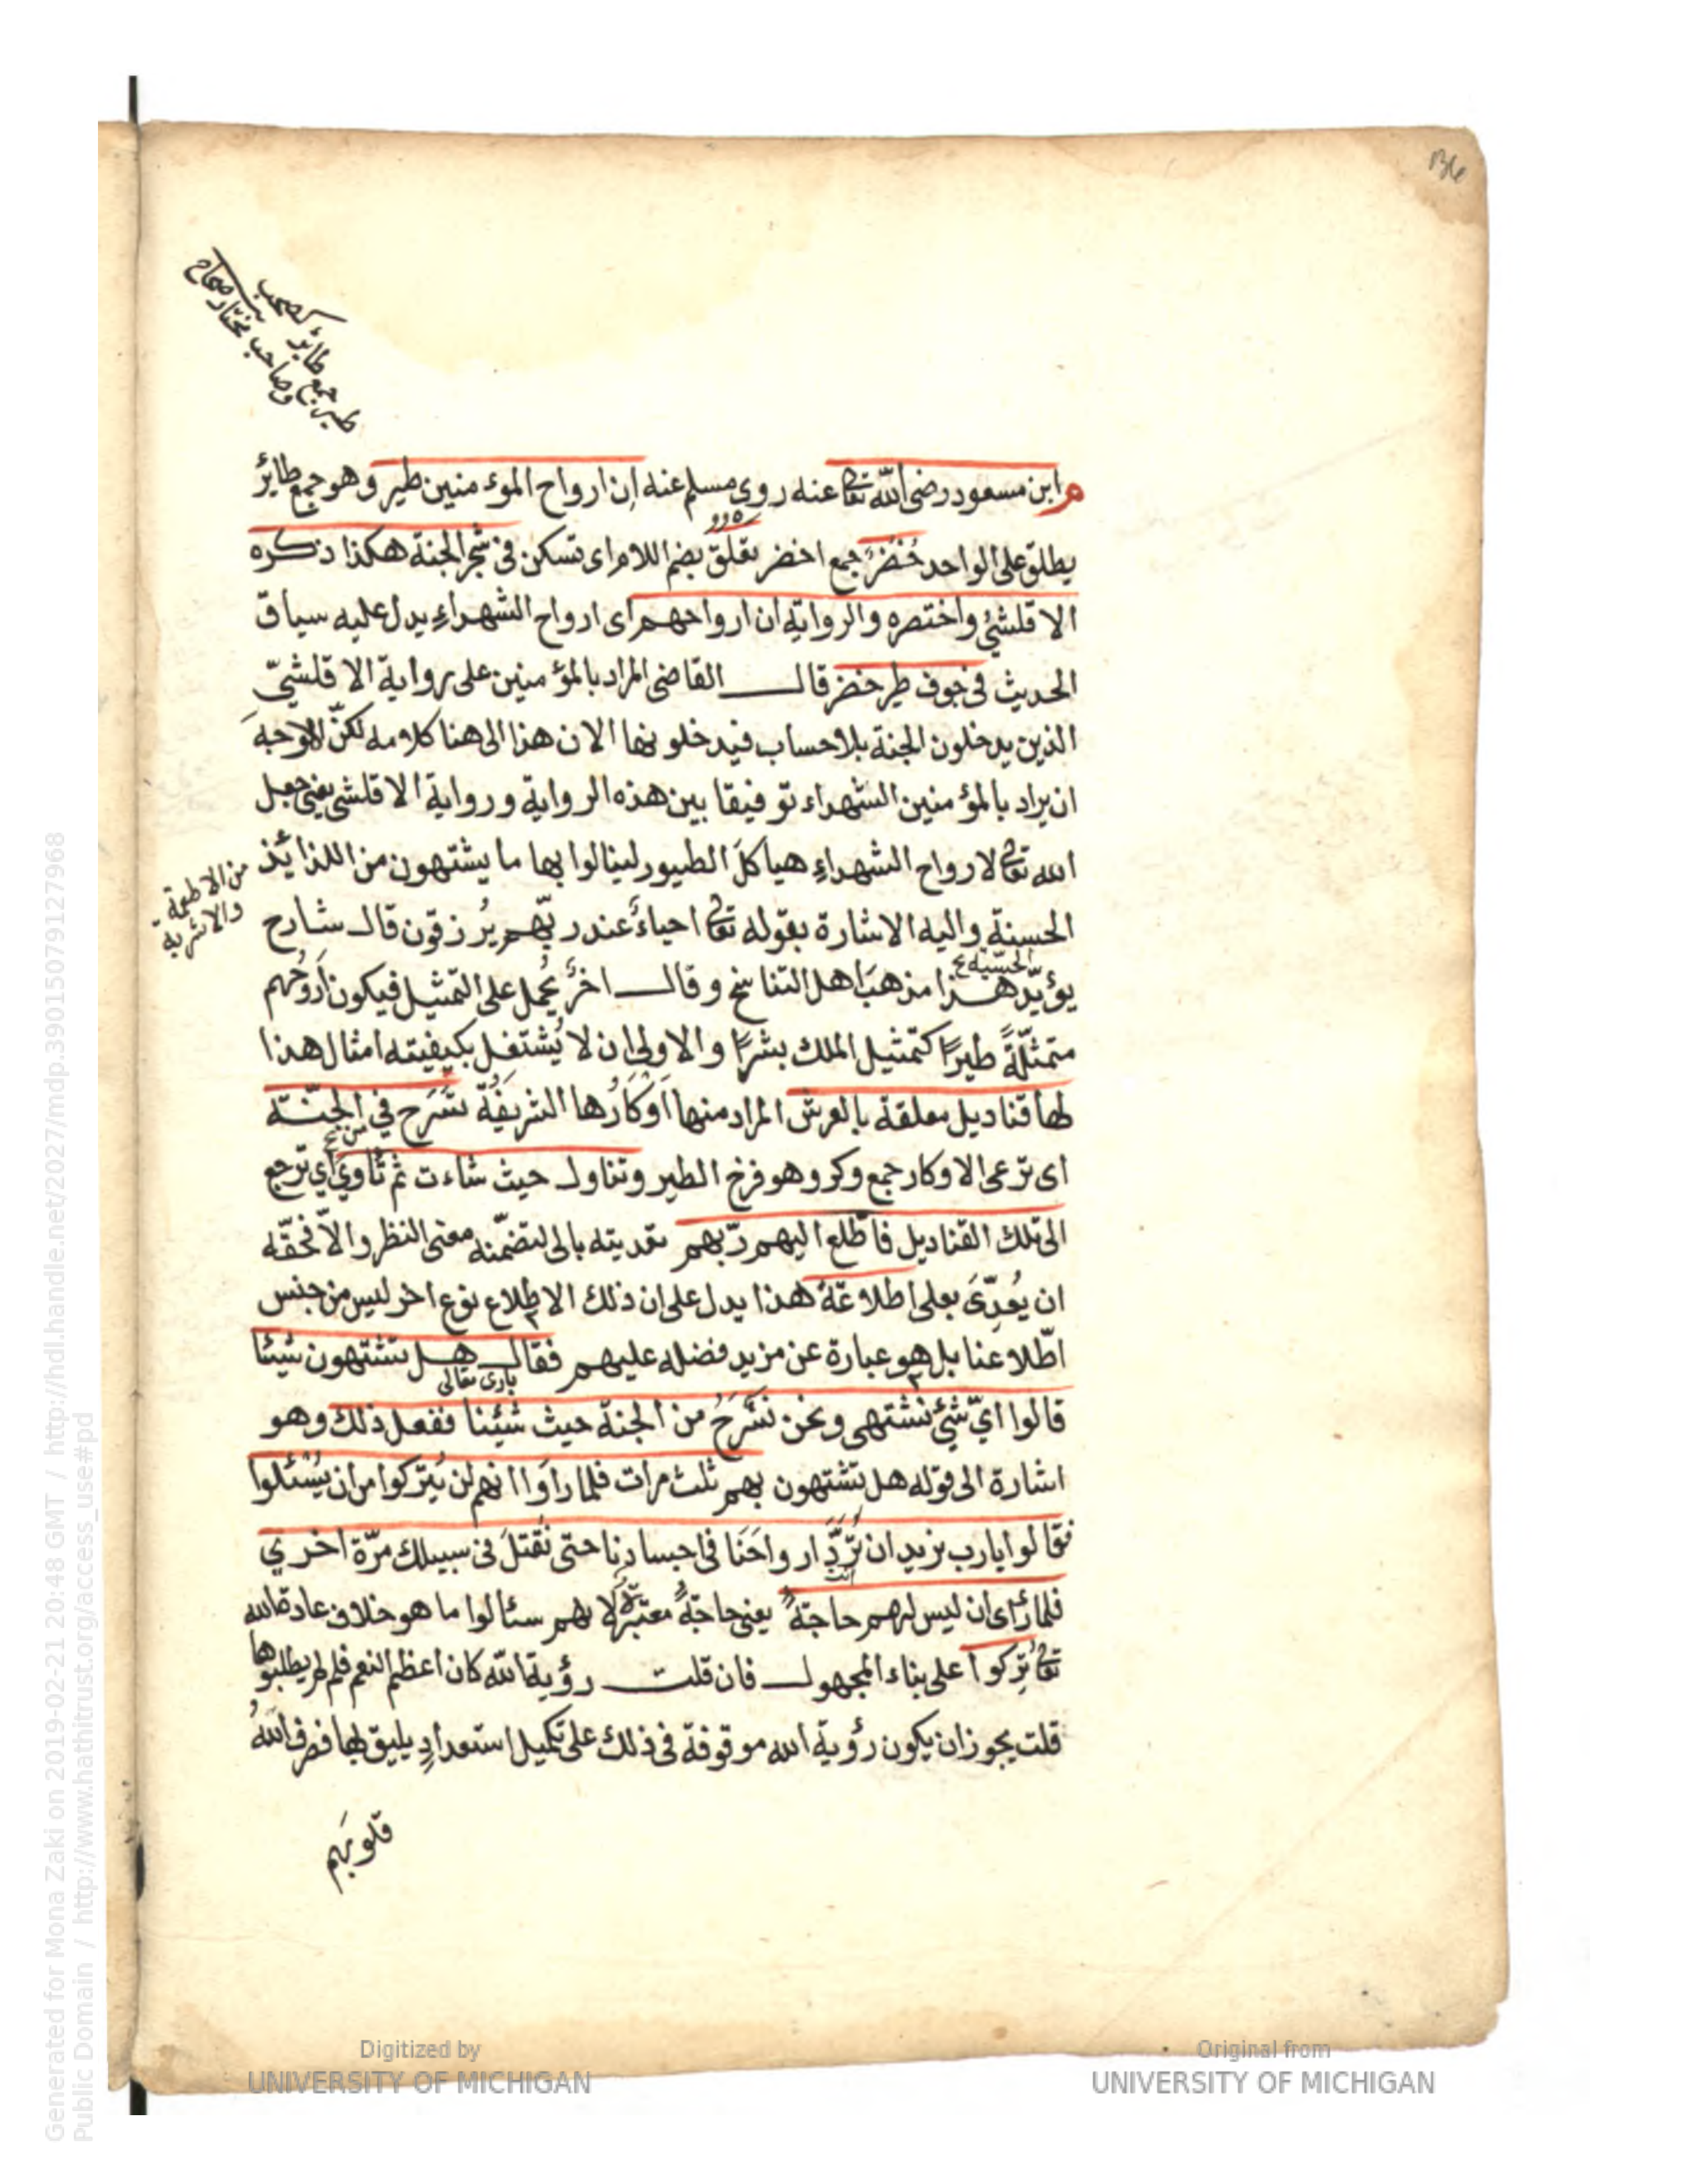 136
طير جمع طائر كصحب
وصاحب مختار صحاح
م ابن مسعود رضى الله تعا عنه روى مسلم عنه ان ارواح الموء منين طير وهو جمع طايرٔ
يطلق على الواحد خُضْرٌ جمع اخضر تعلق بضم اللام اى تسكن فى شجر الجنة هكذا ذكره
الاقلشىٔ واختصره والرواية ان ارواحهم اى ارواح الشهداءِ يدل عليه سياق
الحديث فى جوف طير خضر قال القاضى المراد بالمؤمنين على رواية الاقلشىّ
الذين يدخلون الجنة بلا حساب فيدخلونها الان هذا الى هنا كلامه لكنّ الاوجهَ
ان يراد بالمؤمنين الشهداء توفيقا بين هذه الرواية ورواية الاقلشى يعنى جعل
الله تعا لارواح الشهداءِ هياكلَ الطيور لينالوا بها ما يشتهون من اللذائذ
من الاطعمة
والاشربة
الحسنة واليه الاشارة بقوله تعا احياءٌ عند ربّهم يُرزقون قال شارح
الحسّيه
يؤيّد هذا مذهبَ اهل التناسخ وقال اخرُ يُحمل على التمثيل فيكون ارَوُحهم
متمثّلةً طيرًا كتمثيل الملك بشرًا والاولى ان لا يُشتغل بكيفيته امثال هذا
لها قناديل معلقة بالعرش المراد منها اَوْكَارُها الشريفَةُ تَسْرَح فى الجنّة
اى ترعى الاوكار جمع وكر وهو فرخ الطير وتناول حيث شاءت ثم تأوي اي ترجع
الى تلك القناديل فاطّلع اليهم ربّهم تعديته بالى لتضمّنه معنى النظر والاّ فحقّه
ان يُعدّىَ بعلى اطلاعَةً هذا يدل على ان ذلك الاطلاع نوع اخر ليس من جنس
اطّلاعنا بل هو عبارة عن مزيد فضله عليهم فقال هل تشتهون شيئا
بارى تعالى
قالوا ايّ شىٔ نشتهى ونحن نَسْرَحُ من الجنة حيث شئنا ففعل ذلك وهو
اشارة الى قوله هل تشتهون بهم ثلث مرات فلما رأوا انهم لن يُتركوا من ان يُسْئلوا
فقالوا يا رب نريد ان تَرُدَّ ارواحَنَا فى اجسادنا حتى نُقتلَ فى سبيلك مرّة اخري
فلما رأى ان ليس لهم حاجةٌ يعنى حاجةٌ معتبرةٌ لانهم سئالوا ما هو خلاف عادة الله
تعا تُرِكوا على بناء المجهول فان قلت رؤية الله كان اعظم النعم فلم لم يطلبوها
قلت يجوز ان يكون رؤية الله موقوفة فى ذلك على تكميل استعدادٍ يليق لها فصرف اللهُ
قلوبَهم
Generated for Mona Zaki on 2019-02-21 20:48 GMT / http://hdl.handle.net/2027/mdp.39015079127968
Public Domain / http://www.hathitrust.org/access_use#pd
Digitized by
UNIVERSITY OF MICHIGAN
Original from
UNIVERSITY OF MICHIGAN